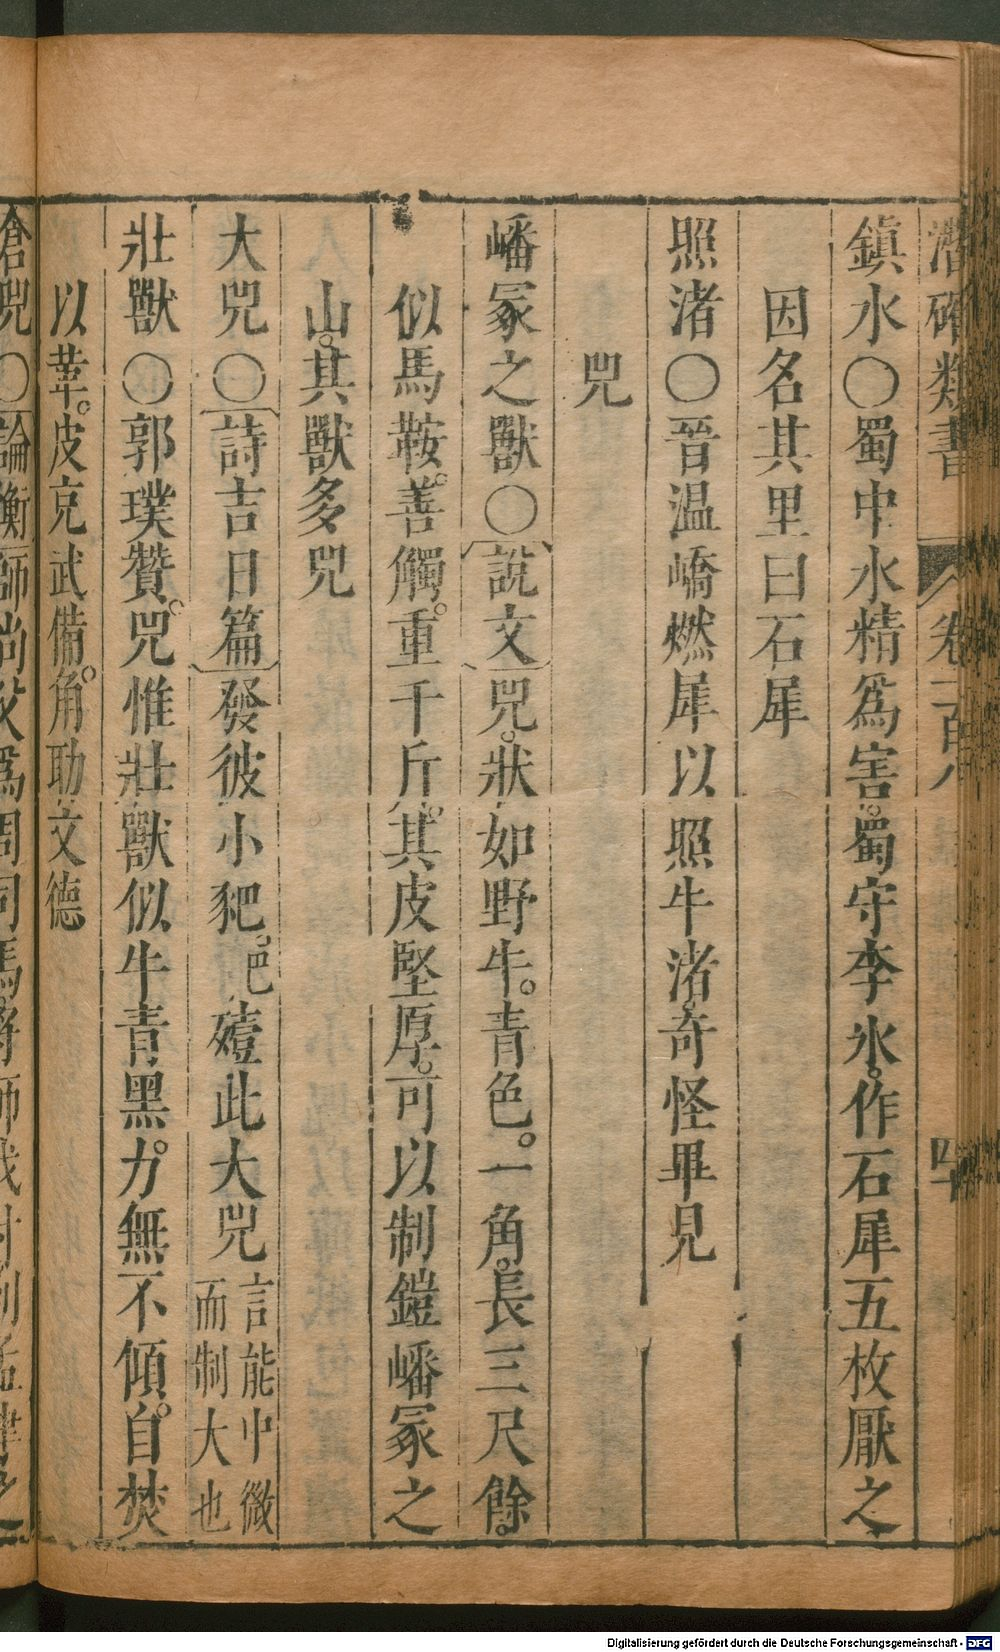 潛確類書 卷一百八 四十
鎮水〇蜀中水精爲害。蜀守李氷。作石犀五枚厭之
因名其里曰石犀
照渚〇晉温嶠燃犀以照牛渚。奇怪畢見
兕
嶓冢之獸〇說文兕。狀如野牛。青色。一角。長三尺餘。
似馬鞍。善觸。重千斤。其皮堅厚。可以制鎧嶓冢之
山。其獸多兕
大兕〇詩吉日篇發彼小豝。豝。殪此大兕言能中微
而制大也
壯獸〇郭璞贊。兕惟壯獸似牛青黑。力無不傾。自焚
以革。皮充武備。角助文德
倉兕〇論衡師尚父爲周司馬。將師伐
Digitalisierung gefördert durch die Deutsche Forschungsgemeinschaft - DFG